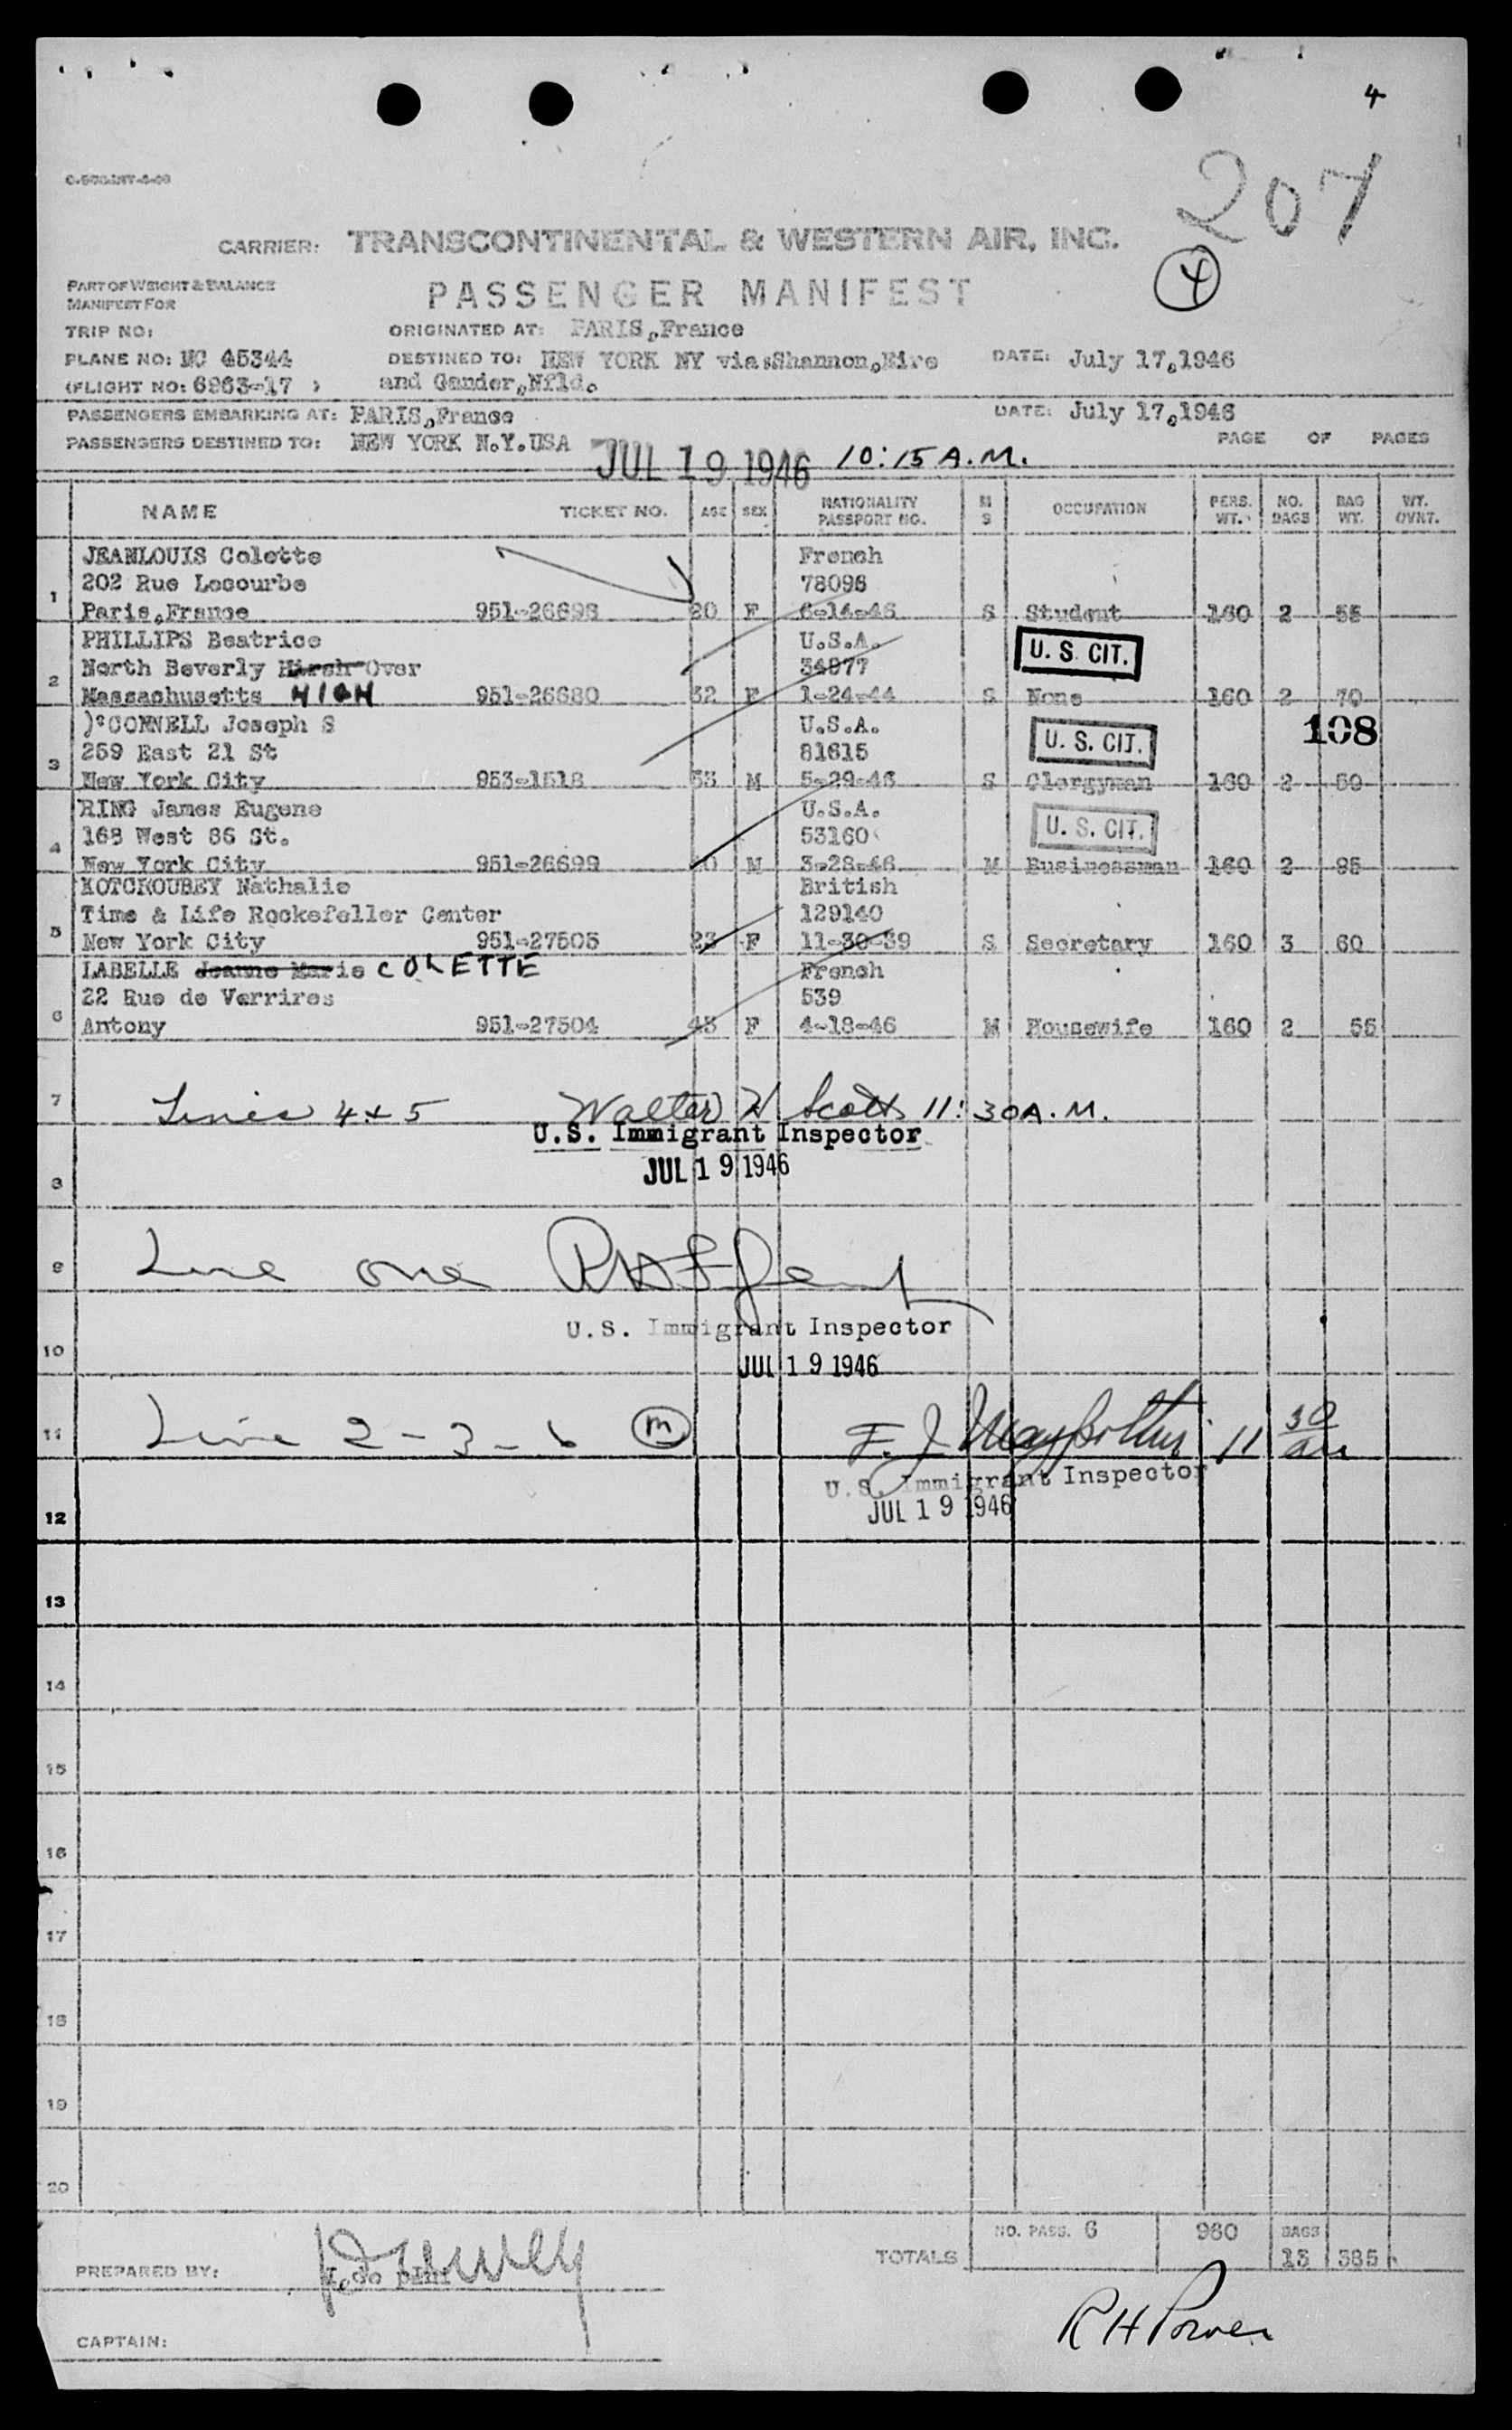 4
207
CARRIER: TRANSCONTINENTAL & WESTERN AIR, INC.
PART OF WEIGHT & BALANCE
MANIFEST FOR
PASSENGER MANIFEST
4
TRIP NO:
ORIGINATED AT: PARIS,France
PLANE NO: NC 45344
DESTINED TO: NEW YORK NY via:Shannon,Eire
DATE: July 17,1946
(FLIGHT NO: 6963-17 )
and Gander,Nfld.
PASSENGERS EMBARKING AT: PARIS,France
DATE: July 17,1946
PASSENGERS DESTINED TO: NEW YORK N.Y.USA
PAGE OF PAGES
JUL 19 1946 10:15 A.M.
NAME TICKET NO. AGE SEX NATIONALITY PASSPORT NO. M S OCCUPATION PERS. WT. NO. BAGS BAG WT. WT. OVNT.
JEANLOUIS Colette French
202 Rue Lecourbe 78096
1 Paris,France 951-26698 20 F 6-14-46 S Student 160 2 55
PHILLIPS Beatrice U.S.A. U. S. CIT.
North Beverly Hirsh Over 34977
2 Massachusetts HIGH 951-26680 32 F 1-24-44 S None 160 2 70
CONNELL Joseph S U.S.A. 108
259 East 21 St 81615 U. S. CIT.
3 New York City 953-1518 53 M 5-29-46 S Clergyman 160 2 50
RING James Eugene U.S.A.
168 West 86 St. 53160 U. S. CIT.
4 New York City 951-26699 M 3-28-46 M Businessman 160 2 95
KOTCHOUBEY Nathalie British
Time & Life Rockefeller Center 129140
5 New York City 951-27505 23 F 11-30-39 S Secretary 160 3 60
LABELLE Jeanne Marie COLETTE French
22 Rue de Verrires 539
6 Antony 951-27504 43 F 4-18-46 M Housewife 160 2 55
7 Lines 4 + 5 Walter W. Scott 11:30 A.M.
U.S. Immigrant Inspector
JUL 19 1946
8
9 Line one
U.S. Immigrant Inspector
10
JUL 19 1946
11 Line 2-3-6 m F. J. 11 30 am
U.S. Immigrant Inspector
JUL 19 1946
12
13
14
15
16
17
18
19
20
TOTALS NO. PASS. 6 960 BAGS 13 385
PREPARED BY:
R H Power
CAPTAIN: